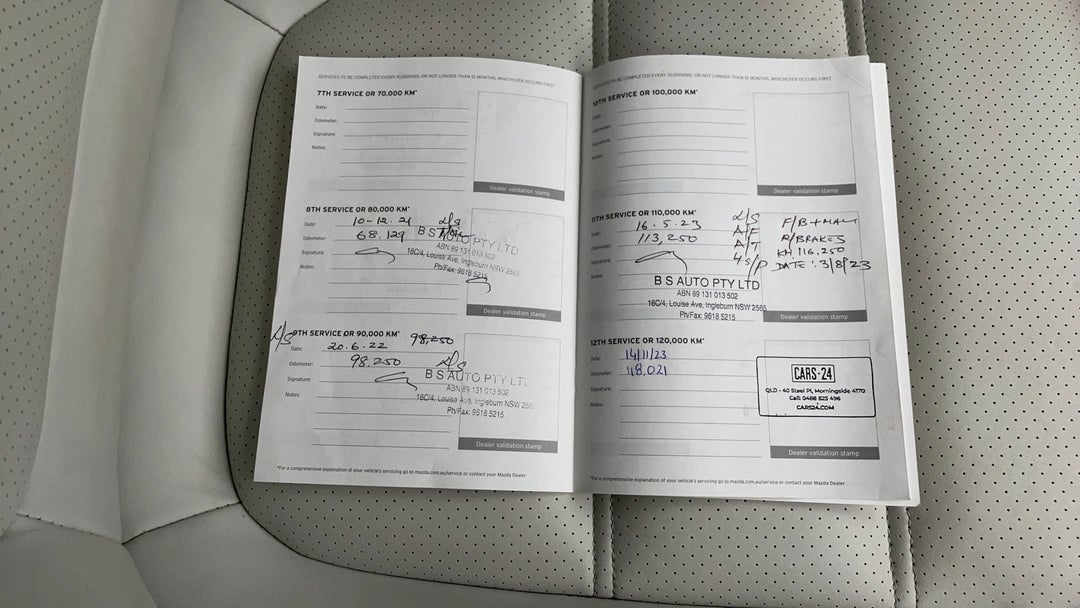 SERVICES TO BE COMPLETED EVERY 10,000KMS, OR NOT LONGER THAN 12 MONTHS, WHICHEVER OCCURS FIRST
7TH SERVICE OR 70,000 KM*
Date:
Odometer:
Signature:
Notes:
Dealer validation stamp
8TH SERVICE OR 80,000 KM*
Date: 10-12.21
Odometer: 68,129
Signature:
Notes:
B S AUTO PTY LTD
ABN 89 131 013 502
16C/4, Louise Ave, Ingleburn NSW 2565
Ph/Fax: 9618 5215
Dealer validation stamp
9TH SERVICE OR 90,000 KM* 98,250
Date: 20.6.22
Odometer: 98,250
Signature:
Notes:
B S AUTO PTY LTD
ABN 89 131 013 502
16C/4, Louise Ave, Ingleburn NSW 256
Ph/Fax: 9618 5215
Dealer validation stamp
*For a comprehensive explanation of your vehicle's servicing go to mazda.com.au/service or contact your Mazda Dealer
SERVICES TO BE COMPLETED EVERY 10,000KMS, OR NOT LONGER THAN 12 MONTHS, WHICHEVER OCCURS FIRST
10TH SERVICE OR 100,000 KM*
Date:
Odometer:
Signature:
Notes:
Dealer validation stamp
11TH SERVICE OR 110,000 KM*
Date: 16.5.23
Odometer: 113,250
Signature:
Notes:
A/F
A/T
4 S/P
F/B +
R/BRAKES
KM 116,250
DATE: 3/8/23
B S AUTO PTY LTD
ABN 89 131 013 502
16C/4, Louise Ave, Ingleburn NSW 2565
Ph/Fax: 9618 5215
Dealer validation stamp
12TH SERVICE OR 120,000 KM*
Date: 14/11/23
Odometer: 118,021
Signature:
Notes:
CARS·24
QLD - 40 Steel Pl, Morningside 4170
Call: 0488 825 496
CARS24.COM
Dealer validation stamp
*For a comprehensive explanation of your vehicle's servicing go to mazda.com.au/service or contact your Mazda Dealer